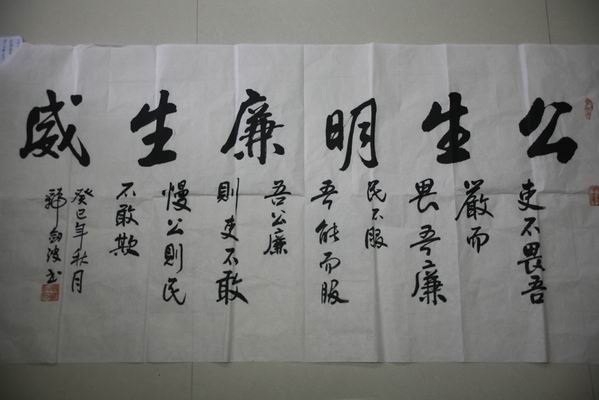 公生明廉生威
吏不畏吾
嚴而
畏吾廉
民不服
吾能而服
吾公廉
則吏不敢
慢公則民
不敢欺
癸巳年秋月
波书